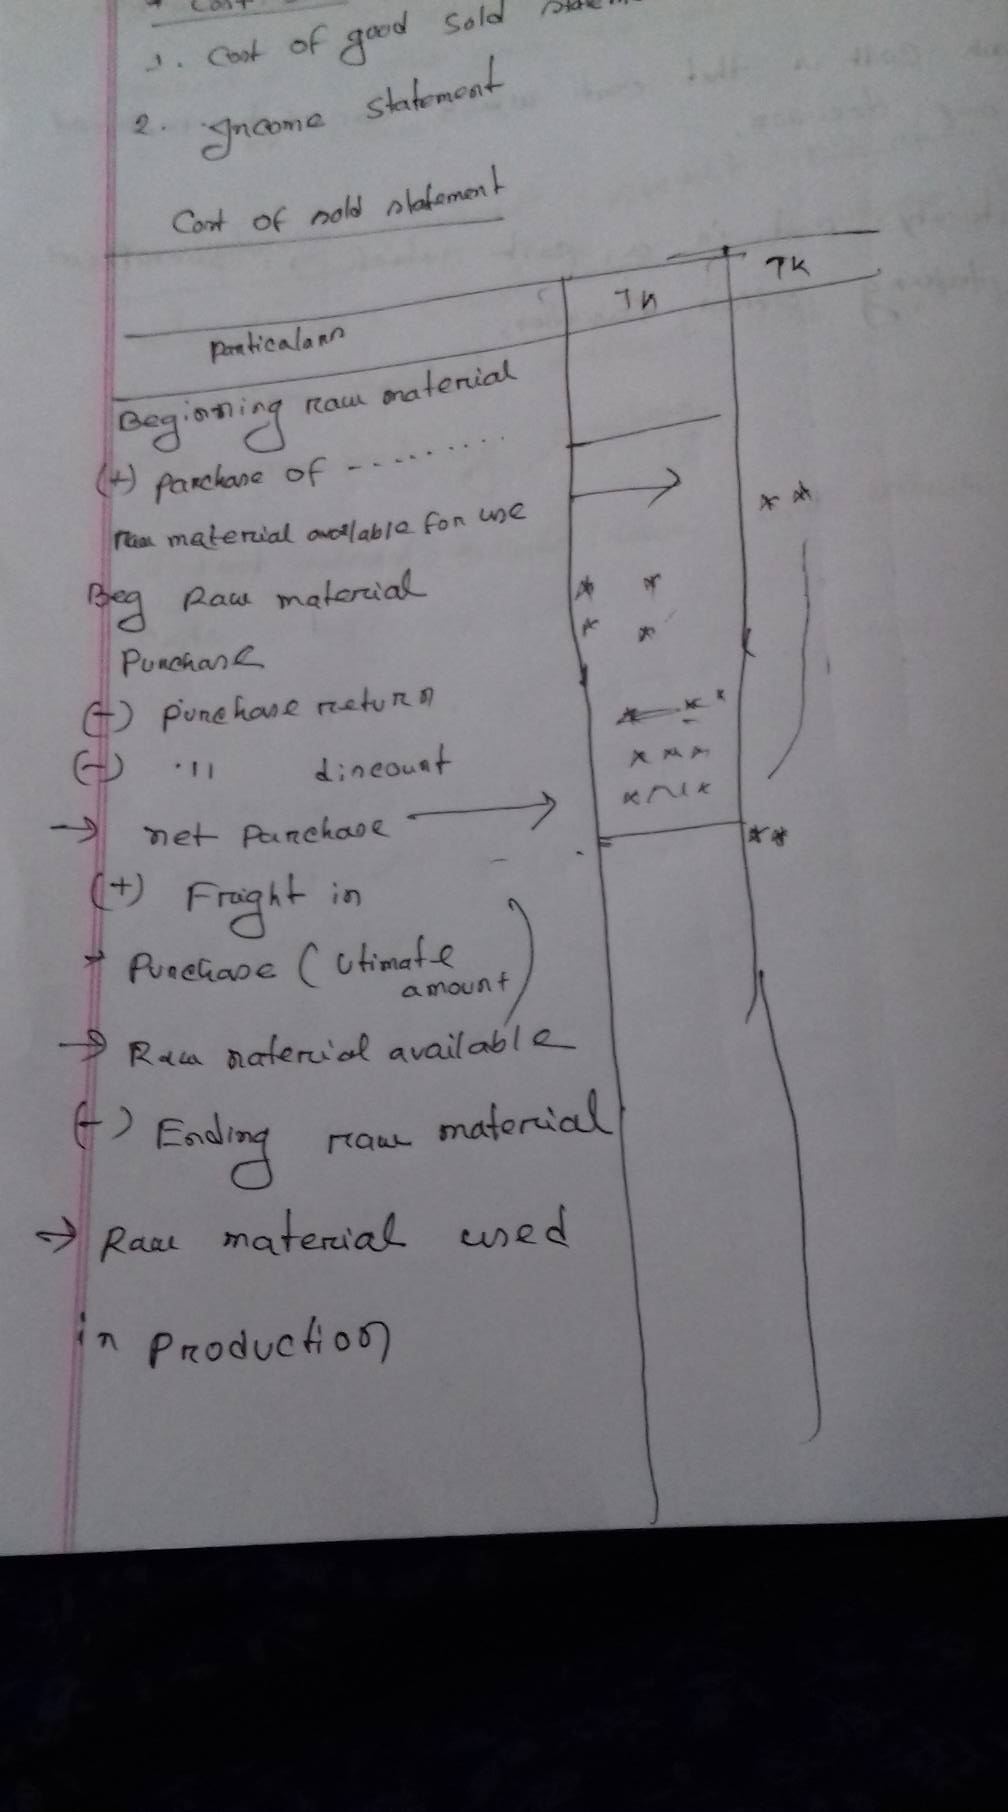 * Cost
1. Cost of good sold
2. Income statement
Cost of sold statement
Particalars TK TK
Beginning raw material
(+) parchase of - - . . . . . . .
raw material available for use * *
Beg Raw material * *
Purchase * *
(-) purchase return
(-) " discount * * *
→ net parchase → **
(+) Fraight in
→ Purchase (Utimate
amount)
→ Raw material available
(-) Ending raw material
→ Raw material used
in Production